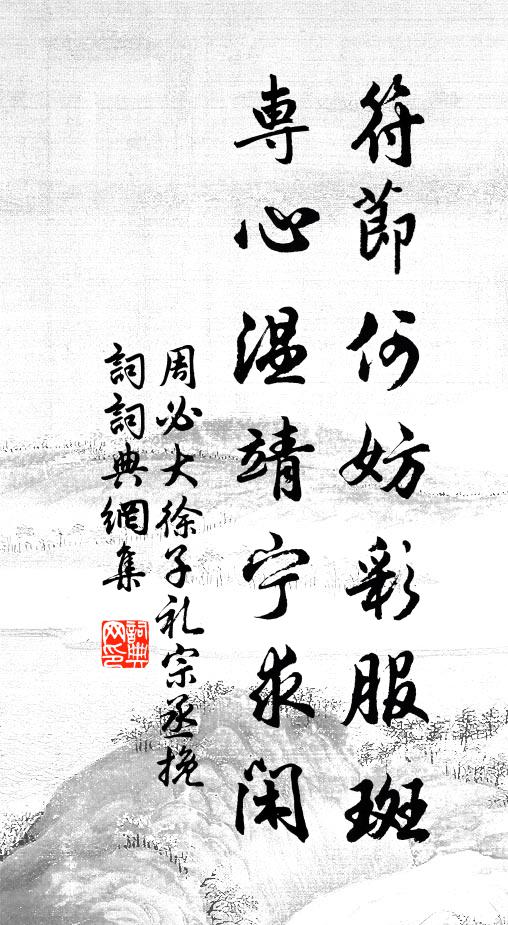 符節何妨彩服斑
専心温靖宁求閑
周必大徐子礼宗丞挽
詞詞典網集
詞典网印